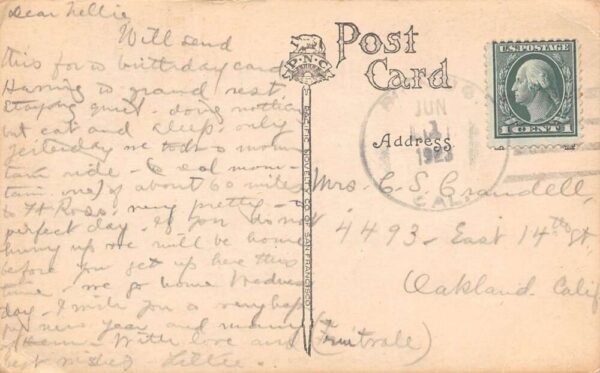 Dear Nellie
Will send
this for a birthday card
Having a grand rest
Staying quiet - doing nothing
but eat and sleep. only
yesterday we took a moun-
tain ride - (real moun-
tain one) of about 60 miles
to Ft Ross. very pretty - a
perfect day. If you don't
hurry up we will be home
before you get up here this
time - we go home Wednes
day. I wish you a very hap
py new year and many
of them. With love and
best wishes Lillie.
Post
Card
P.N.C.
PACIFIC NOVELTY CO. OF SAN FRANCISCO
Address
U.S. POSTAGE
1 CENT 1
JUN
1
1923
CAL.
Mrs. C. S. Crandell,
4493 - East 14th St.
Oakland. Calif
(Fruitvale)